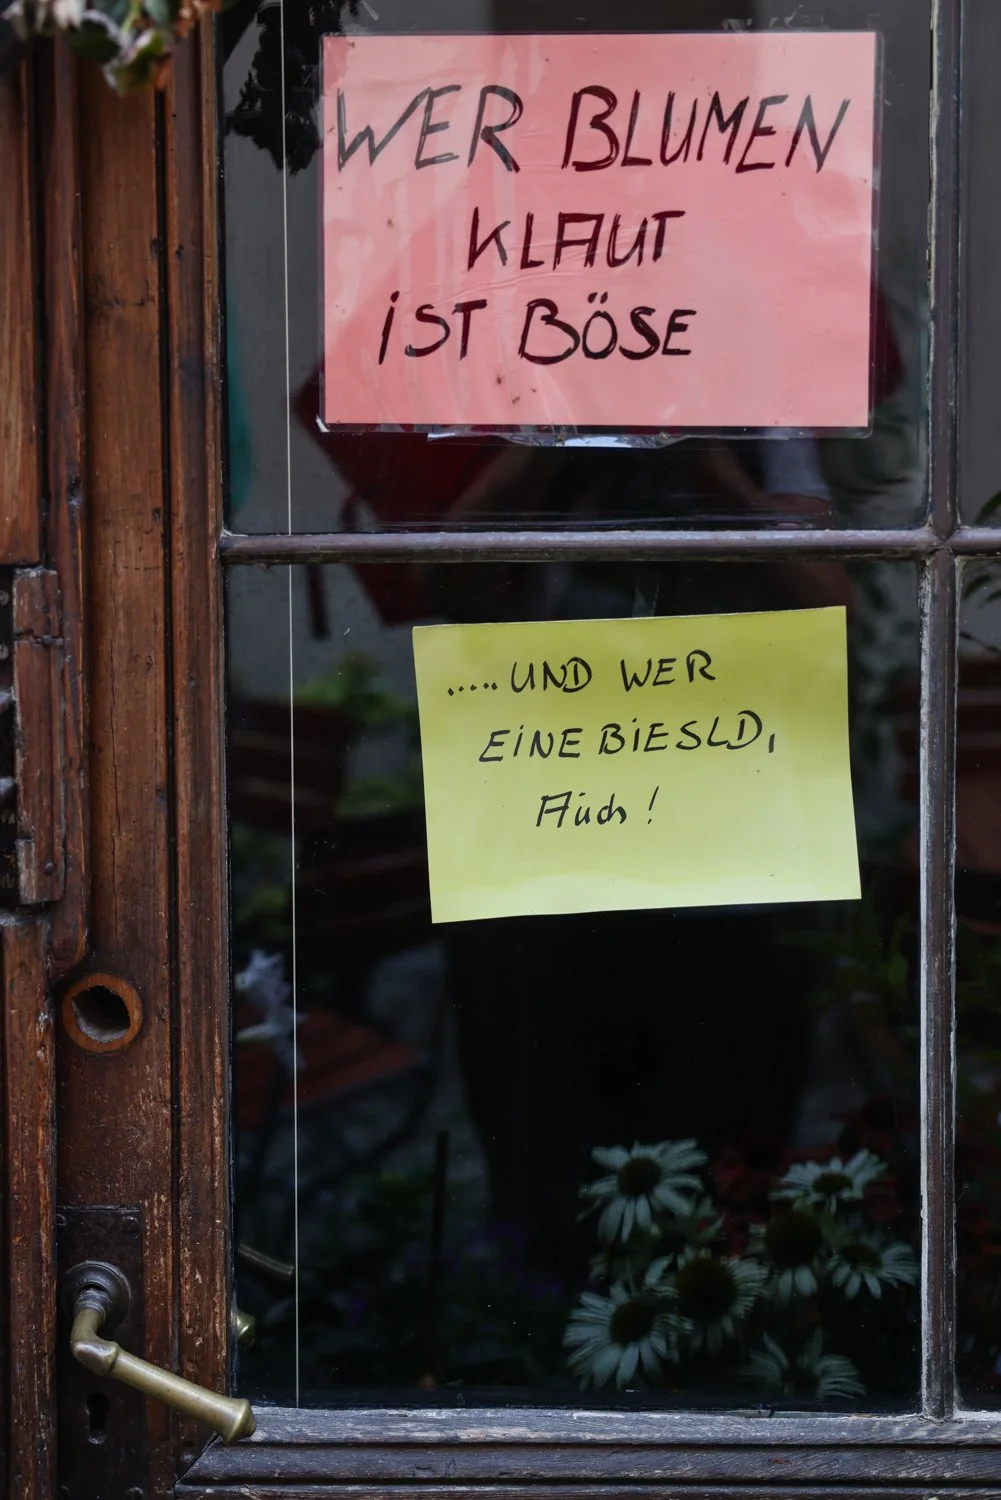 WER BLUMEN
KLAUT
iST BÖSE
.....UND WER
EiNE BiESLD,
Auch!